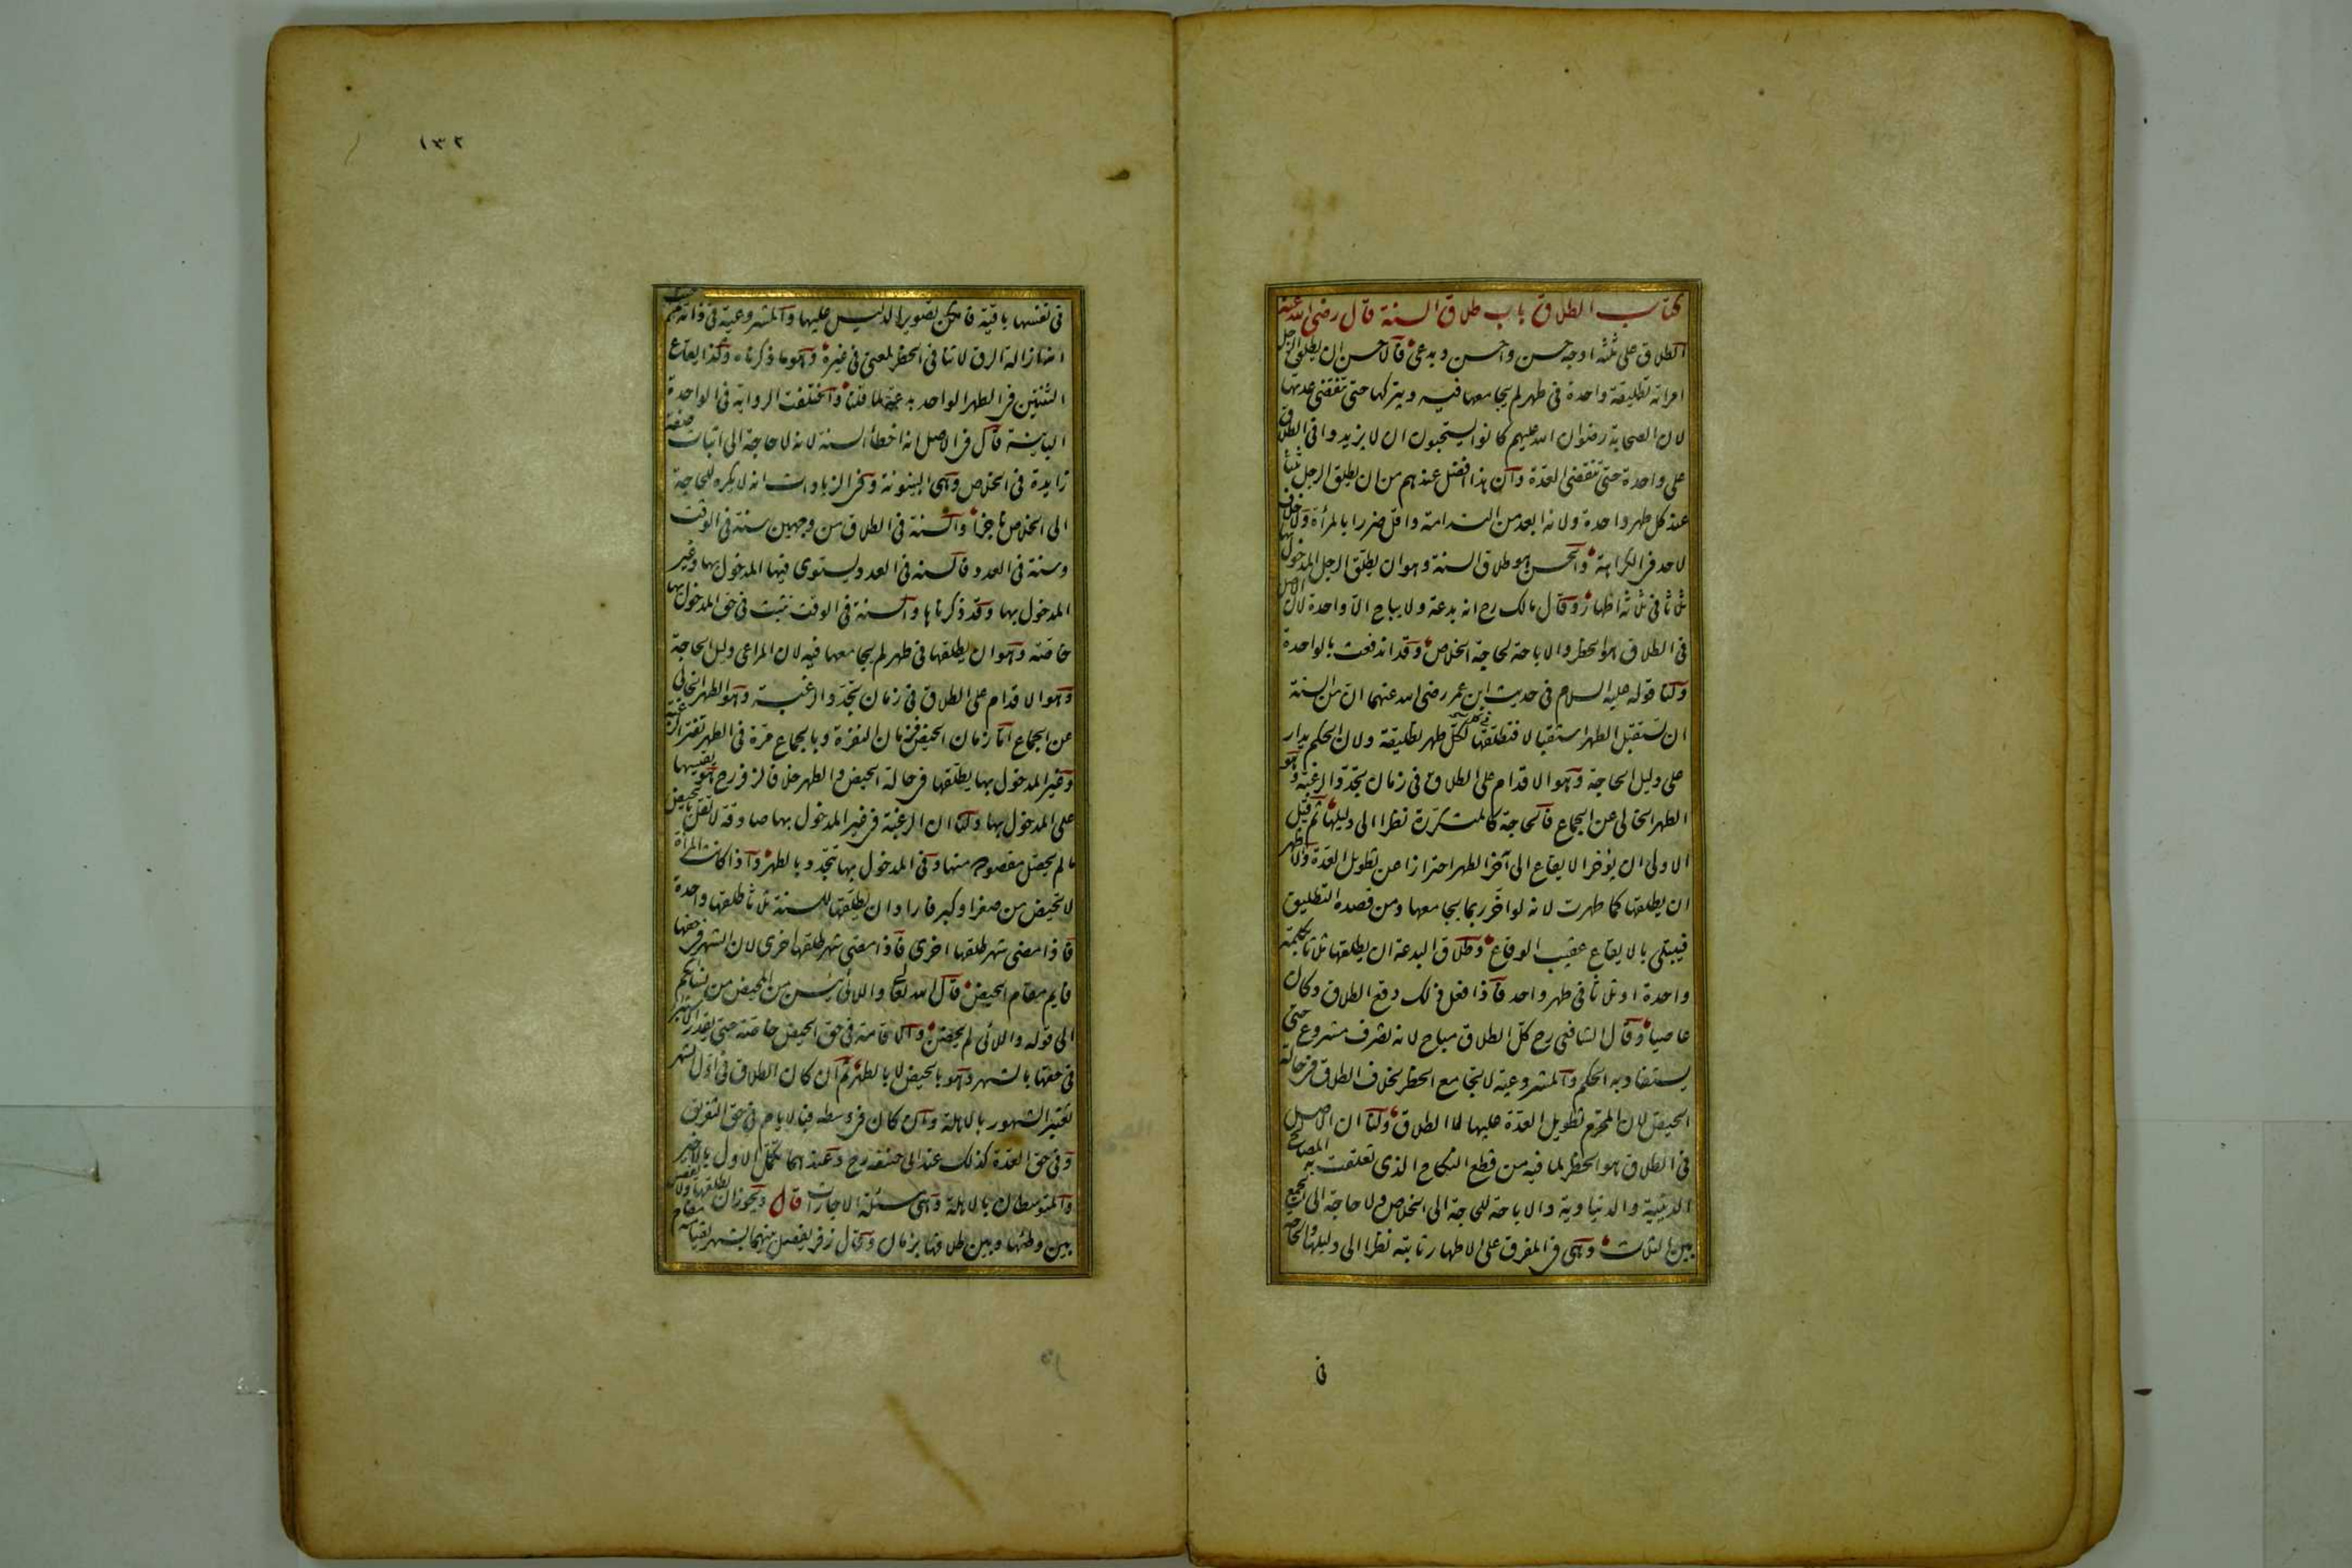 كتاب الطلاق باب طلاق السنة قال رضى الله عنه
الطلاق على ثلثه اوجه حسن واحسن وبدعى فالاحسن ان يطلق الرجل
امراته تطليقة واحدة فى طهر لم يجامعها فيه ويتركها حتى تنقضى عدتها
لان الصحابة رضوان الله عليهم كانوا يستحبون ان لا يزيدوا فى الطلاق
على واحدة حتى تنقضى العدة وان هذا افضل عندهم من ان يطلق الرجل ثلثا
عند كل طهر واحدة ولانه ابعد من الندامة واقل ضررا بالمرأة ولا خلاف
لاحد فى الكراهة والحسن هو طلاق السنة وهو ان يطلق الرجل المدخول بها
ثلاثا فى ثلاثة اطهار وقال مالك رح انه بدعة ولا يباح الا واحدة لان الاصل
فى الطلاق هو الحظر والاباحة لحاجة الخلاص وقد اندفعت بالواحدة
ولنا قوله عليه السلام فى حديث ابن عمر رضى الله عنهما ان من السنة
ان تستقبل الطهر استقبالا فتطلقها لكل طهر تطليقة ولان الحكم يدار
على دليل الحاجة وهو الاقدام على الطلاق فى زمان تجدد الرغبة وهو
الطهر الخالى عن الجماع فالحاجة كالمتكررة نظرا الى دليلها ثم قيل
الاولى ان يؤخر الايقاع الى آخر الطهر احترازا عن تطويل العدة والاظهر
ان يطلقها كما طهرت لانه لو اخر ربما يجامعها ومن قصده التطليق
فيبتلى بالايقاع عقيب الوقاع وطلاق البدعة ان يطلقها ثلاثا بكلمة
واحدة او ثلاثا فى طهر واحد فاذا فعل ذلك وقع الطلاق وكان
عاصيا وقال الشافعى رح كل الطلاق مباح لانه تصرف مشروع حتى
يستفاد به الحكم والمشروعية لا تجامع الحظر بخلاف الطلاق فى حالة
الحيض لان المحرم تطويل العدة عليها لا الطلاق ولنا ان الاصل
فى الطلاق هو الحظر لما فيه من قطع النكاح الذى تعلقت به المصالح
الدينية والدنياوية والاباحة للحاجة الى الخلاص ولا حاجة الى الجمع
بين الثلاث وهى فى المفرق على الاطهار ثابتة نظرا الى دليلها والحاجة
فى
١٣٢
فى نفسها باقية فامكن تصوير الدليل عليها والمشروعية فى ذاته من حيث
انه ازالة الرق لا تنافى الحظر لمعنى فى غيره وهو ما ذكرناه وكذا ايقاع
الثنتين فى الطهر الواحد بدعة لما قلنا واختلفت الرواية فى الواحدة
الباينة قال فى الاصل انه اخطأ السنة لانه لا حاجة الى اثبات صفة
زايدة فى الخلاص وهى البينونة وفى الزيادات انه لا يكره للحاجة
الى الخلاص ناجزا والسنة فى الطلاق من وجهين سنة فى الوقت
وسنة فى العدد فالسنة فى العدد يستوى فيها المدخول بها وغير
المدخول بها وقد ذكرناها والسنة فى الوقت تثبت فى حق المدخول بها
خاصة وهو ان يطلقها فى طهر لم يجامعها فيه لان المراعى دليل الحاجة
وهو الاقدام على الطلاق فى زمان تجدد الرغبة وهو الطهر الخالى
عن الجماع اما زمان الحيض فزمان النفرة وبالجماع مرة فى الطهر تفتر الرغبة
وغير المدخول بها يطلقها فى حالة الحيض والطهر خلافا لزفر رح هو يقيسها
على المدخول بها ولنا ان الرغبة فى غير المدخول بها صادقة لا تقل بالحيض
ما لم يحصل مقصوده منها وفى المدخول بها تتجدد بالطهر واذا كانت المرأة
لا تحيض من صغر او كبر فاراد ان يطلقها للسنة ثلاثا طلقها واحدة
فاذا مضى شهر طلقها اخرى فاذا مضى شهر طلقها اخرى لان الشهر فى حقها
قايم مقام الحيض قال الله تعالى واللائى يئسن من المحيض من نسايكم
الى قوله واللائى لم يحضن والاقامة فى حق الحيض خاصة حتى يقدر الاستبراء
فى حقها بالشهر وهو بالحيض لا بالطهر ثم ان كان الطلاق فى اول الشهر
تعتبر الشهور بالاهلة وان كان فى وسطه فبالايام فى حق التفريق
وفى حق العدة كذلك عند ابى حنيفة رح وعندهما يكمل الاول بالاخير
والمتوسطان بالاهلة وهى مسئلة الاجارات قال ويجوز ان يطلقها ولا يفصل
بين وطئها وبين طلاقها بزمان وقال زفر يفصل بينهما بشهر لقيامه مقام